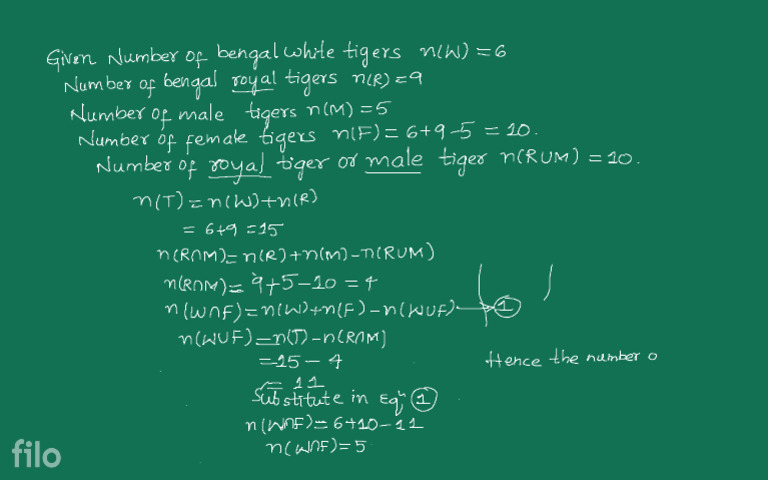 Given Number of bengal white tigers n(W) = 6
Number of bengal royal tigers n(R) = 9
Number of male tigers n(M) = 5
Number of female tigers n(F) = 6+9-5 = 10.
Number of royal tiger or male tiger n(RUM) = 10.
n(T) = n(W)+n(R)
= 6+9 = 15
n(R∩M) = n(R)+n(m)-n(RUM)
n(R∩M) = 9+5-10 = 4
n(W∩F) = n(W)+n(F)-n(WUF) → ①
n(WUF) = n(T)-n(R∩M)
= 15 - 4
= 11
Hence the number o
Substitute in Eqⁿ ①
n(W∩F) = 6+10-11
n(W∩F) = 5
filo